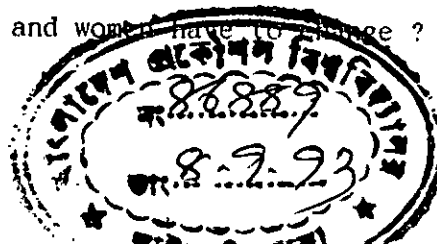 and women have to change ?
বাংলাদেশ প্রকৌশল বিশ্ববিদ্যালয়
নং......86889
তাং...8-9-93